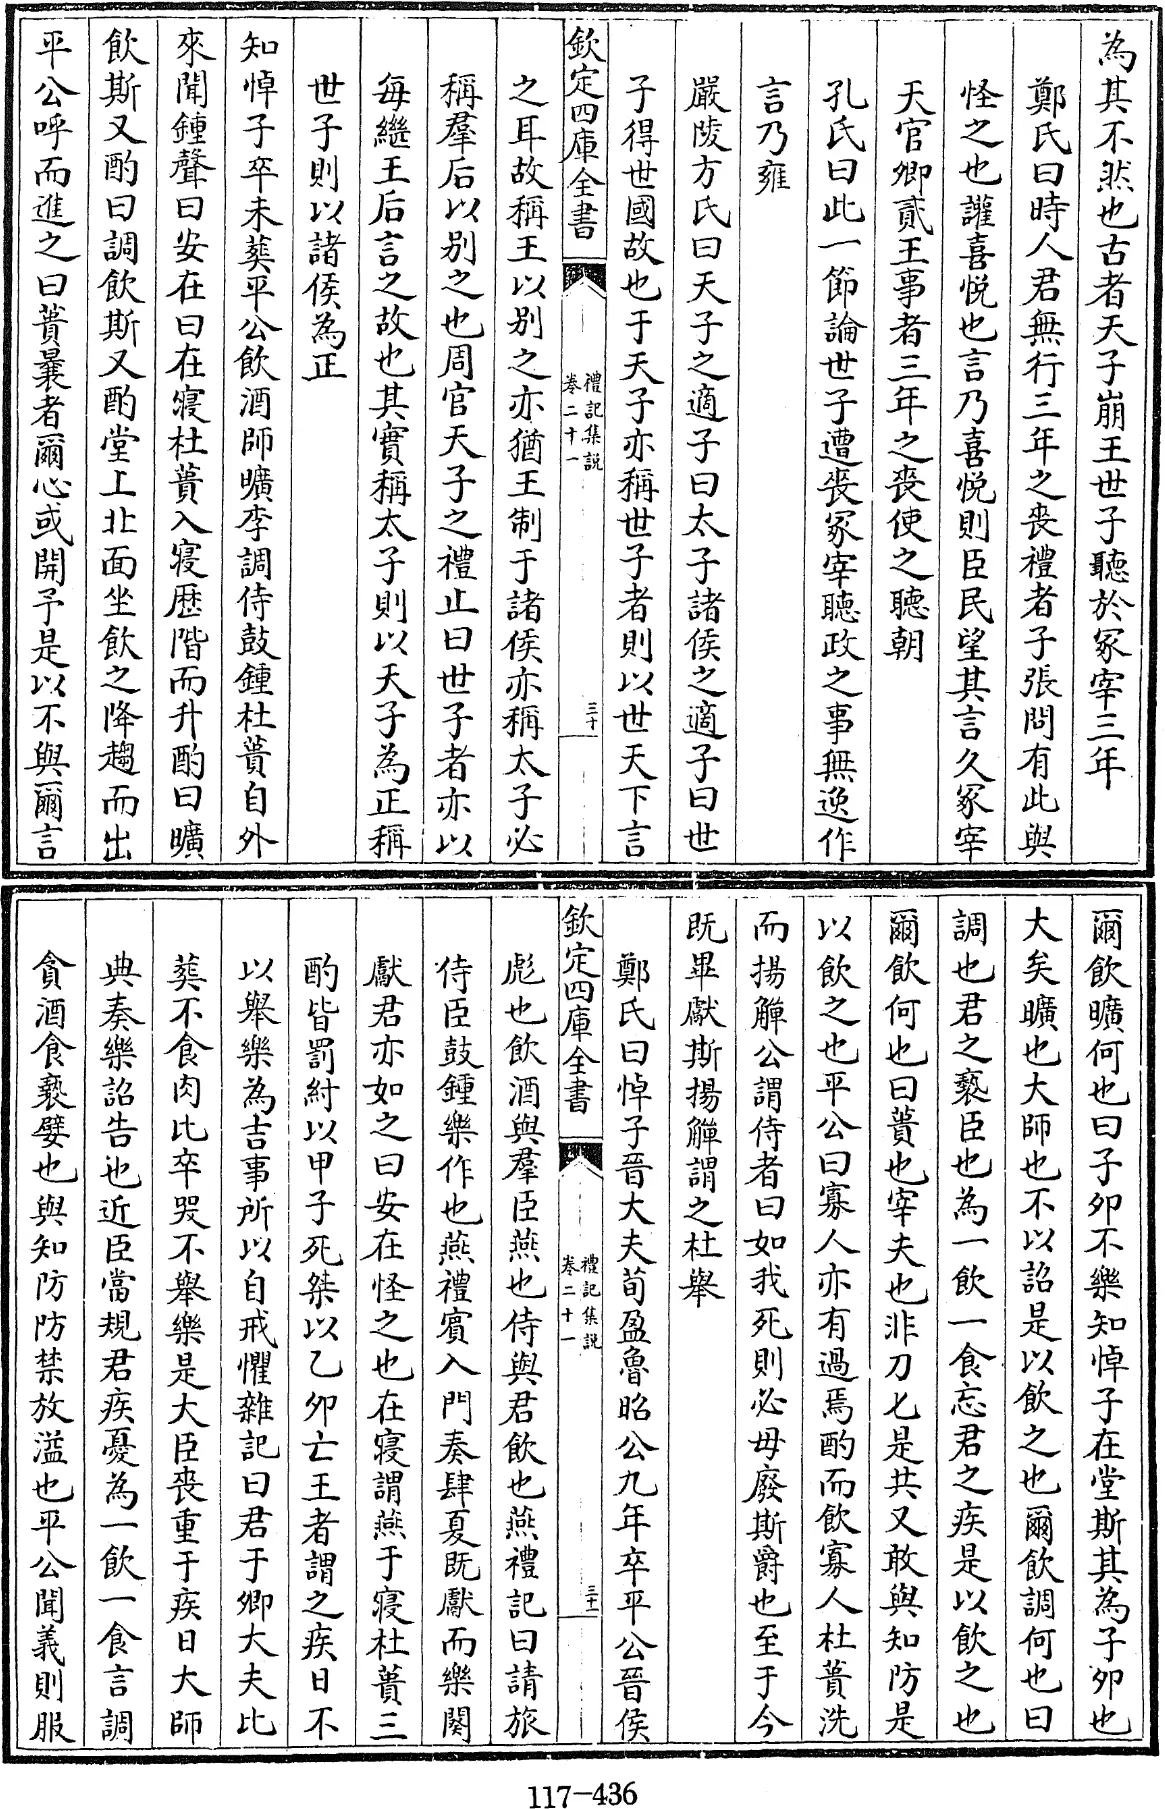 為其不然也古者天子崩王世子聽於冢宰三年
鄭氏曰時人君無行三年之喪禮者子張問有此與
怪之也讙喜悅也言乃喜悅則臣民望其言久冢宰
天官卿貳王事者三年之喪使之聽朝
孔氏曰此一節論世子遭喪冢宰聽政之事無逸作
言乃雍
嚴陵方氏曰天子之適子曰太子諸侯之適子曰世
子得世國故也于天子亦稱世子者則以世天下言
欽定四庫全書
禮記集說
卷二十一
三十
之耳故稱王以別之亦猶王制于諸侯亦稱太子必
稱羣后以別之也周官天子之禮止曰世子者亦以
每繼王后言之故也其實稱太子則以天子為正稱
世子則以諸侯為正
知悼子卒未葬平公飲酒師曠李調侍鼓鍾杜蕢自外
來聞鍾聲曰安在曰在寢杜蕢入寢歷階而升酌曰曠
飲斯又酌曰調飲斯又酌堂上北面坐飲之降趨而出
平公呼而進之曰蕢曩者爾心或開予是以不與爾言
爾飲曠何也曰子卯不樂知悼子在堂斯其為子卯也
大矣曠也大師也不以詔是以飲之也爾飲調何也曰
調也君之褻臣也為一飲一食忘君之疾是以飲之也
爾飲何也曰蕢也宰夫也非刀匕是共又敢與知防是
以飲之也平公曰寡人亦有過焉酌而飲寡人杜蕢洗
而揚觶公謂侍者曰如我死則必毋廢斯爵也至于今
既畢獻斯揚觶謂之杜舉
鄭氏曰悼子晉大夫荀盈魯昭公九年卒平公晉侯
欽定四庫全書
禮記集說
卷二十一
三十一
彪也飲酒與羣臣燕也侍與君飲也燕禮記曰請旅
侍臣鼓鍾樂作也燕禮賓入門奏肆夏既獻而樂闋
獻君亦如之曰安在怪之也在寢謂燕于寢杜蕢三
酌皆罰紂以甲子死桀以乙卯亡王者謂之疾日不
以舉樂為吉事所以自戒懼雜記曰君于卿大夫比
葬不食肉比卒哭不舉樂是大臣喪重于疾日大師
典奏樂詔告也近臣當規君疾憂為一飲一食言調
貪酒食褻嬖也與知防防禁放溢也平公聞義則服
117-436